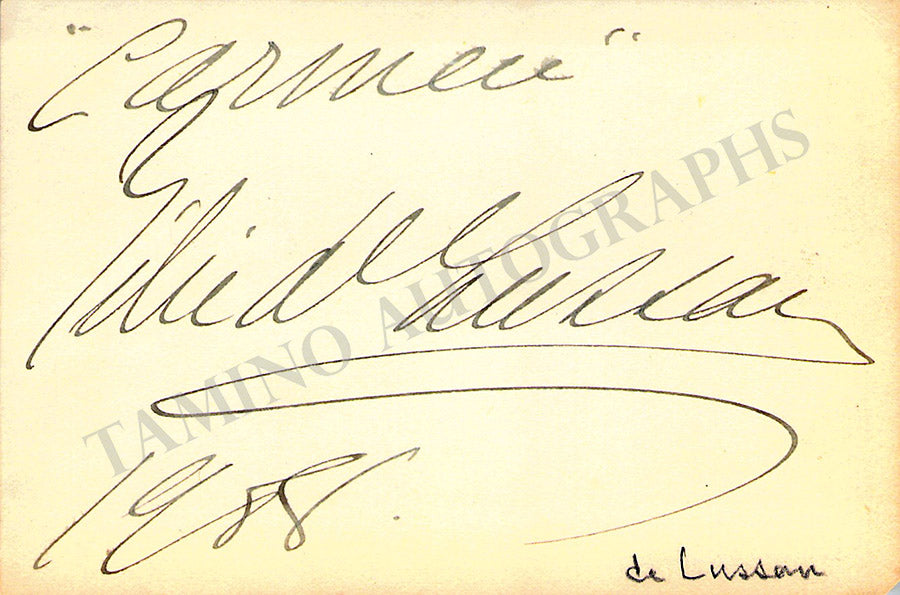 "Carmen"
Zélie de Lussan
TAMINO AUTOGRAPHS
1988.
de Lussan